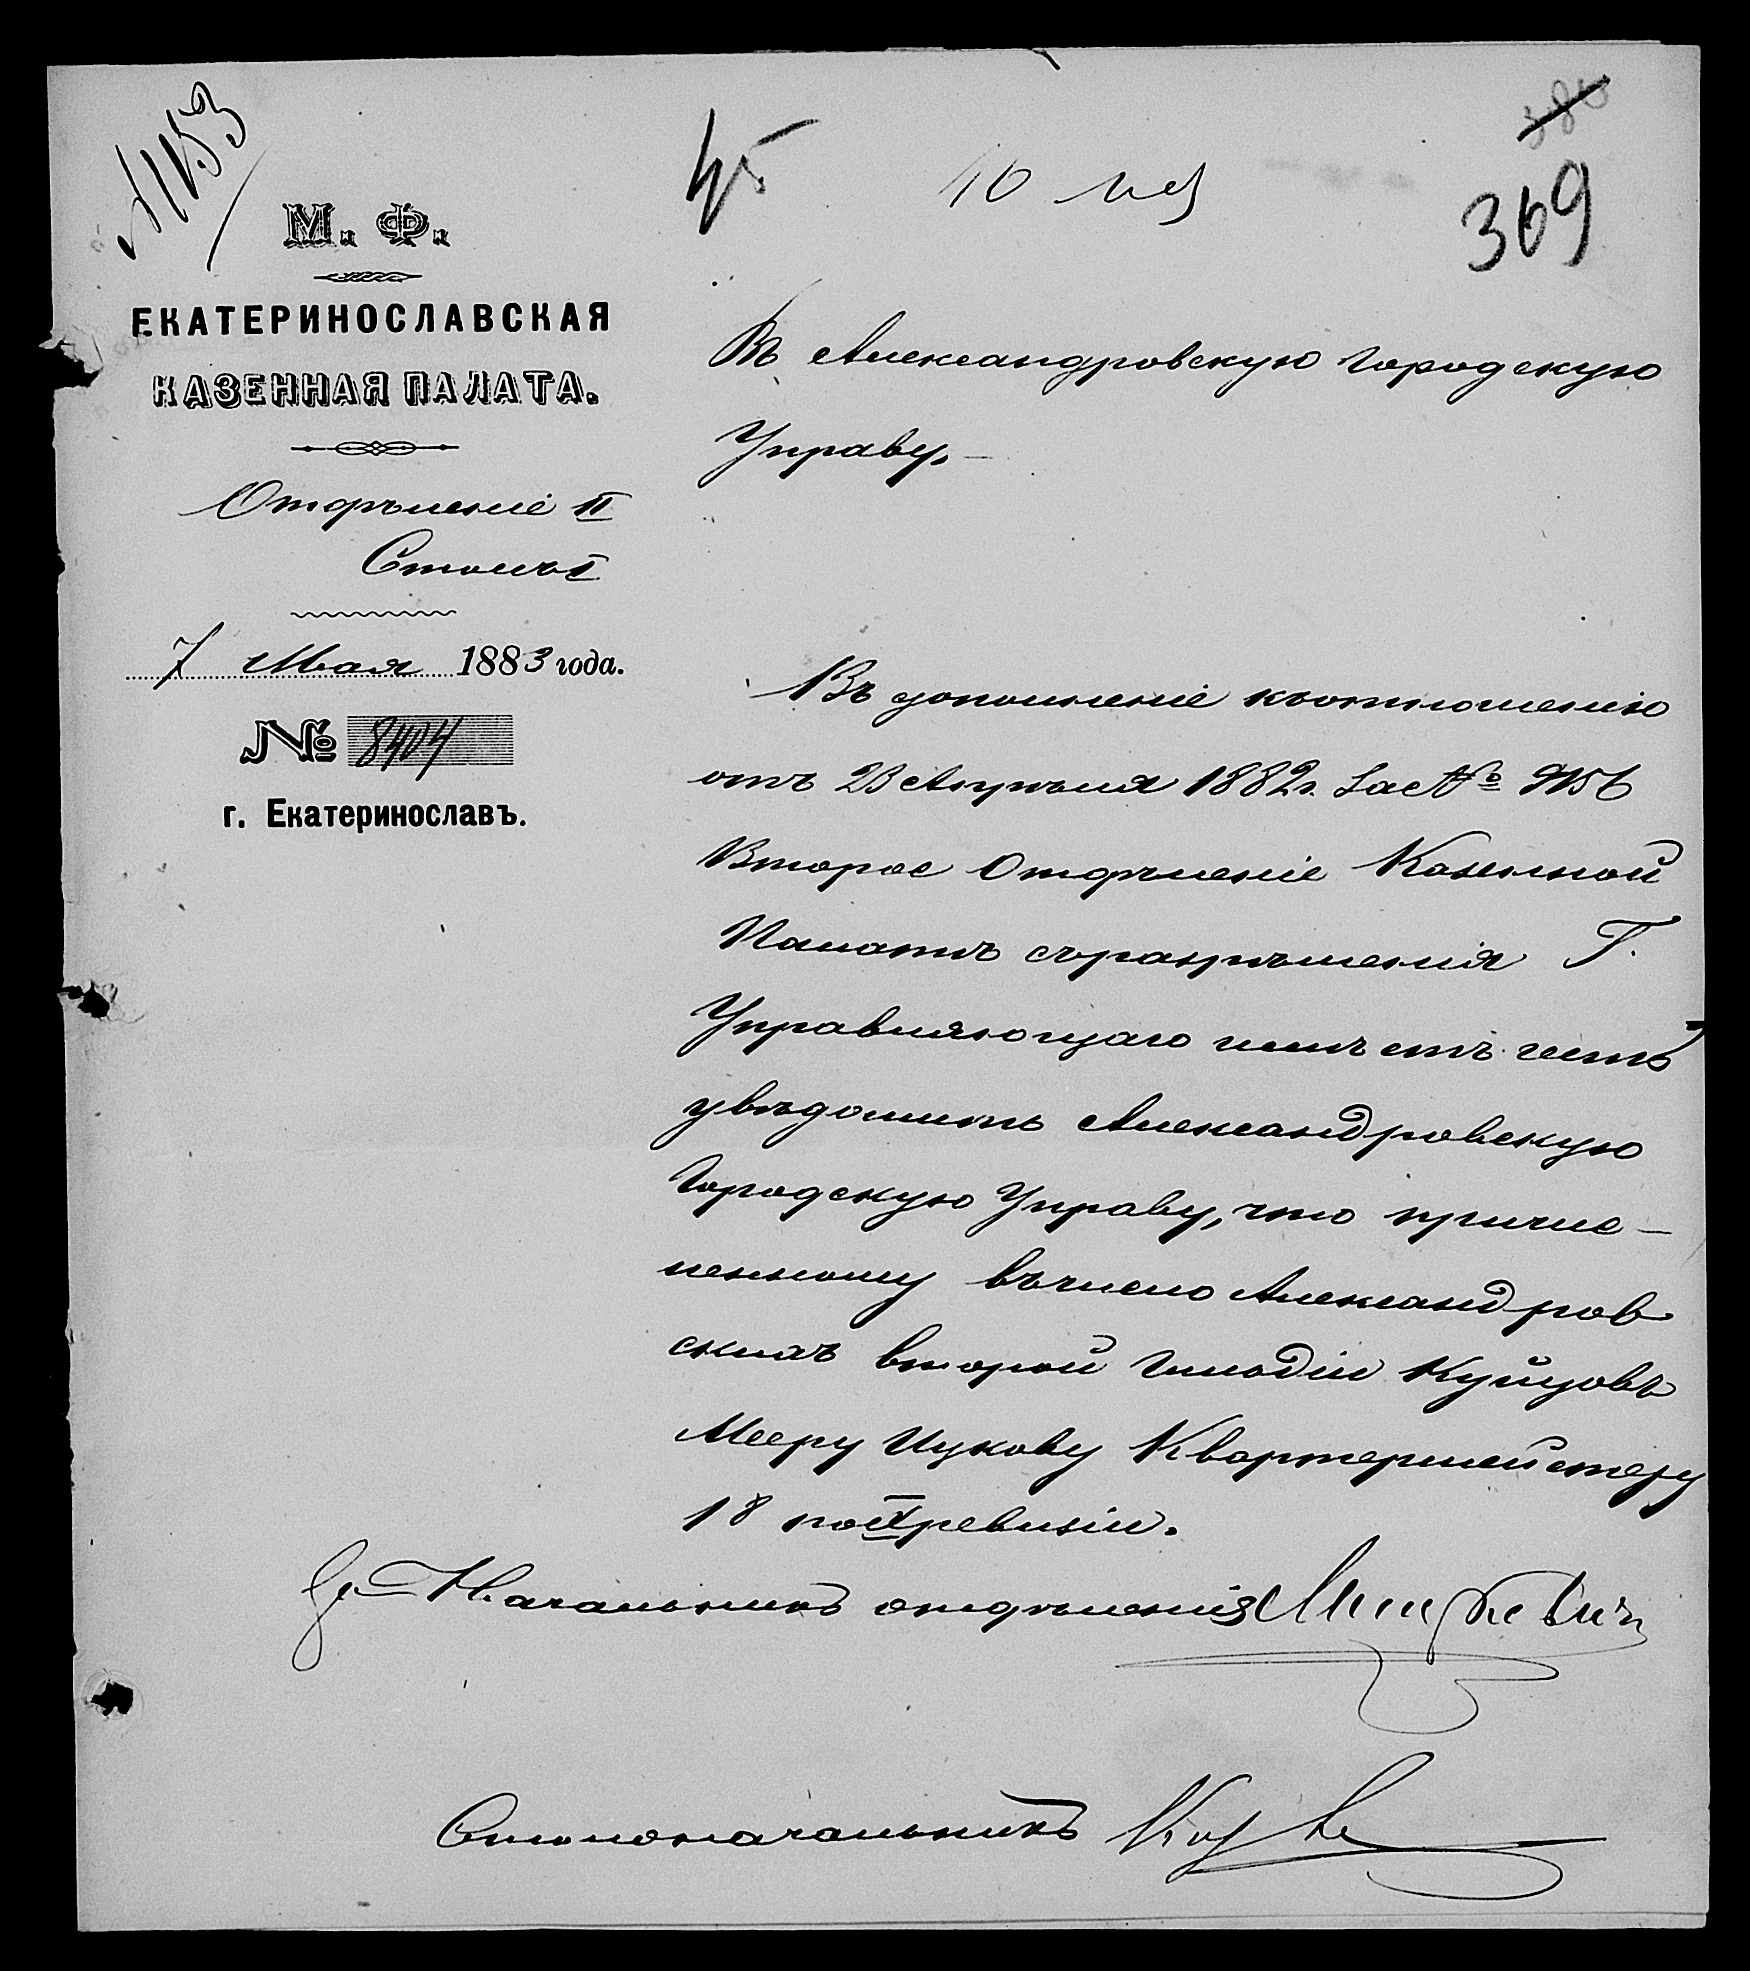 № 1153
45
10 мая
380
369
М. Ф.
ЕКАТЕРИНОСЛАВСКАЯ
КАЗЕННАЯ ПАЛАТА.
Отдѣленіе II
Столъ I
7 Мая 1883 года.
№ 8404
г. Екатеринославъ.
Въ Александровскую Городскую
Управу.
Въ дополненіе къ отношенію
отъ 23 Апрѣля 1882 г. за № 9156
Второе Отдѣленіе Казенной
Палаты съ разрѣшенія Г.
Управляющаго имѣетъ честь
увѣдомить Александровскую
Городскую Управу, что причис-
ленному въ число Александров
скихъ второй Гильдіи Купцовъ
Мееру Ицкову Квартермейстеру
18 по X ревизіи.
Начальникъ отдѣленія
Столоначальникъ